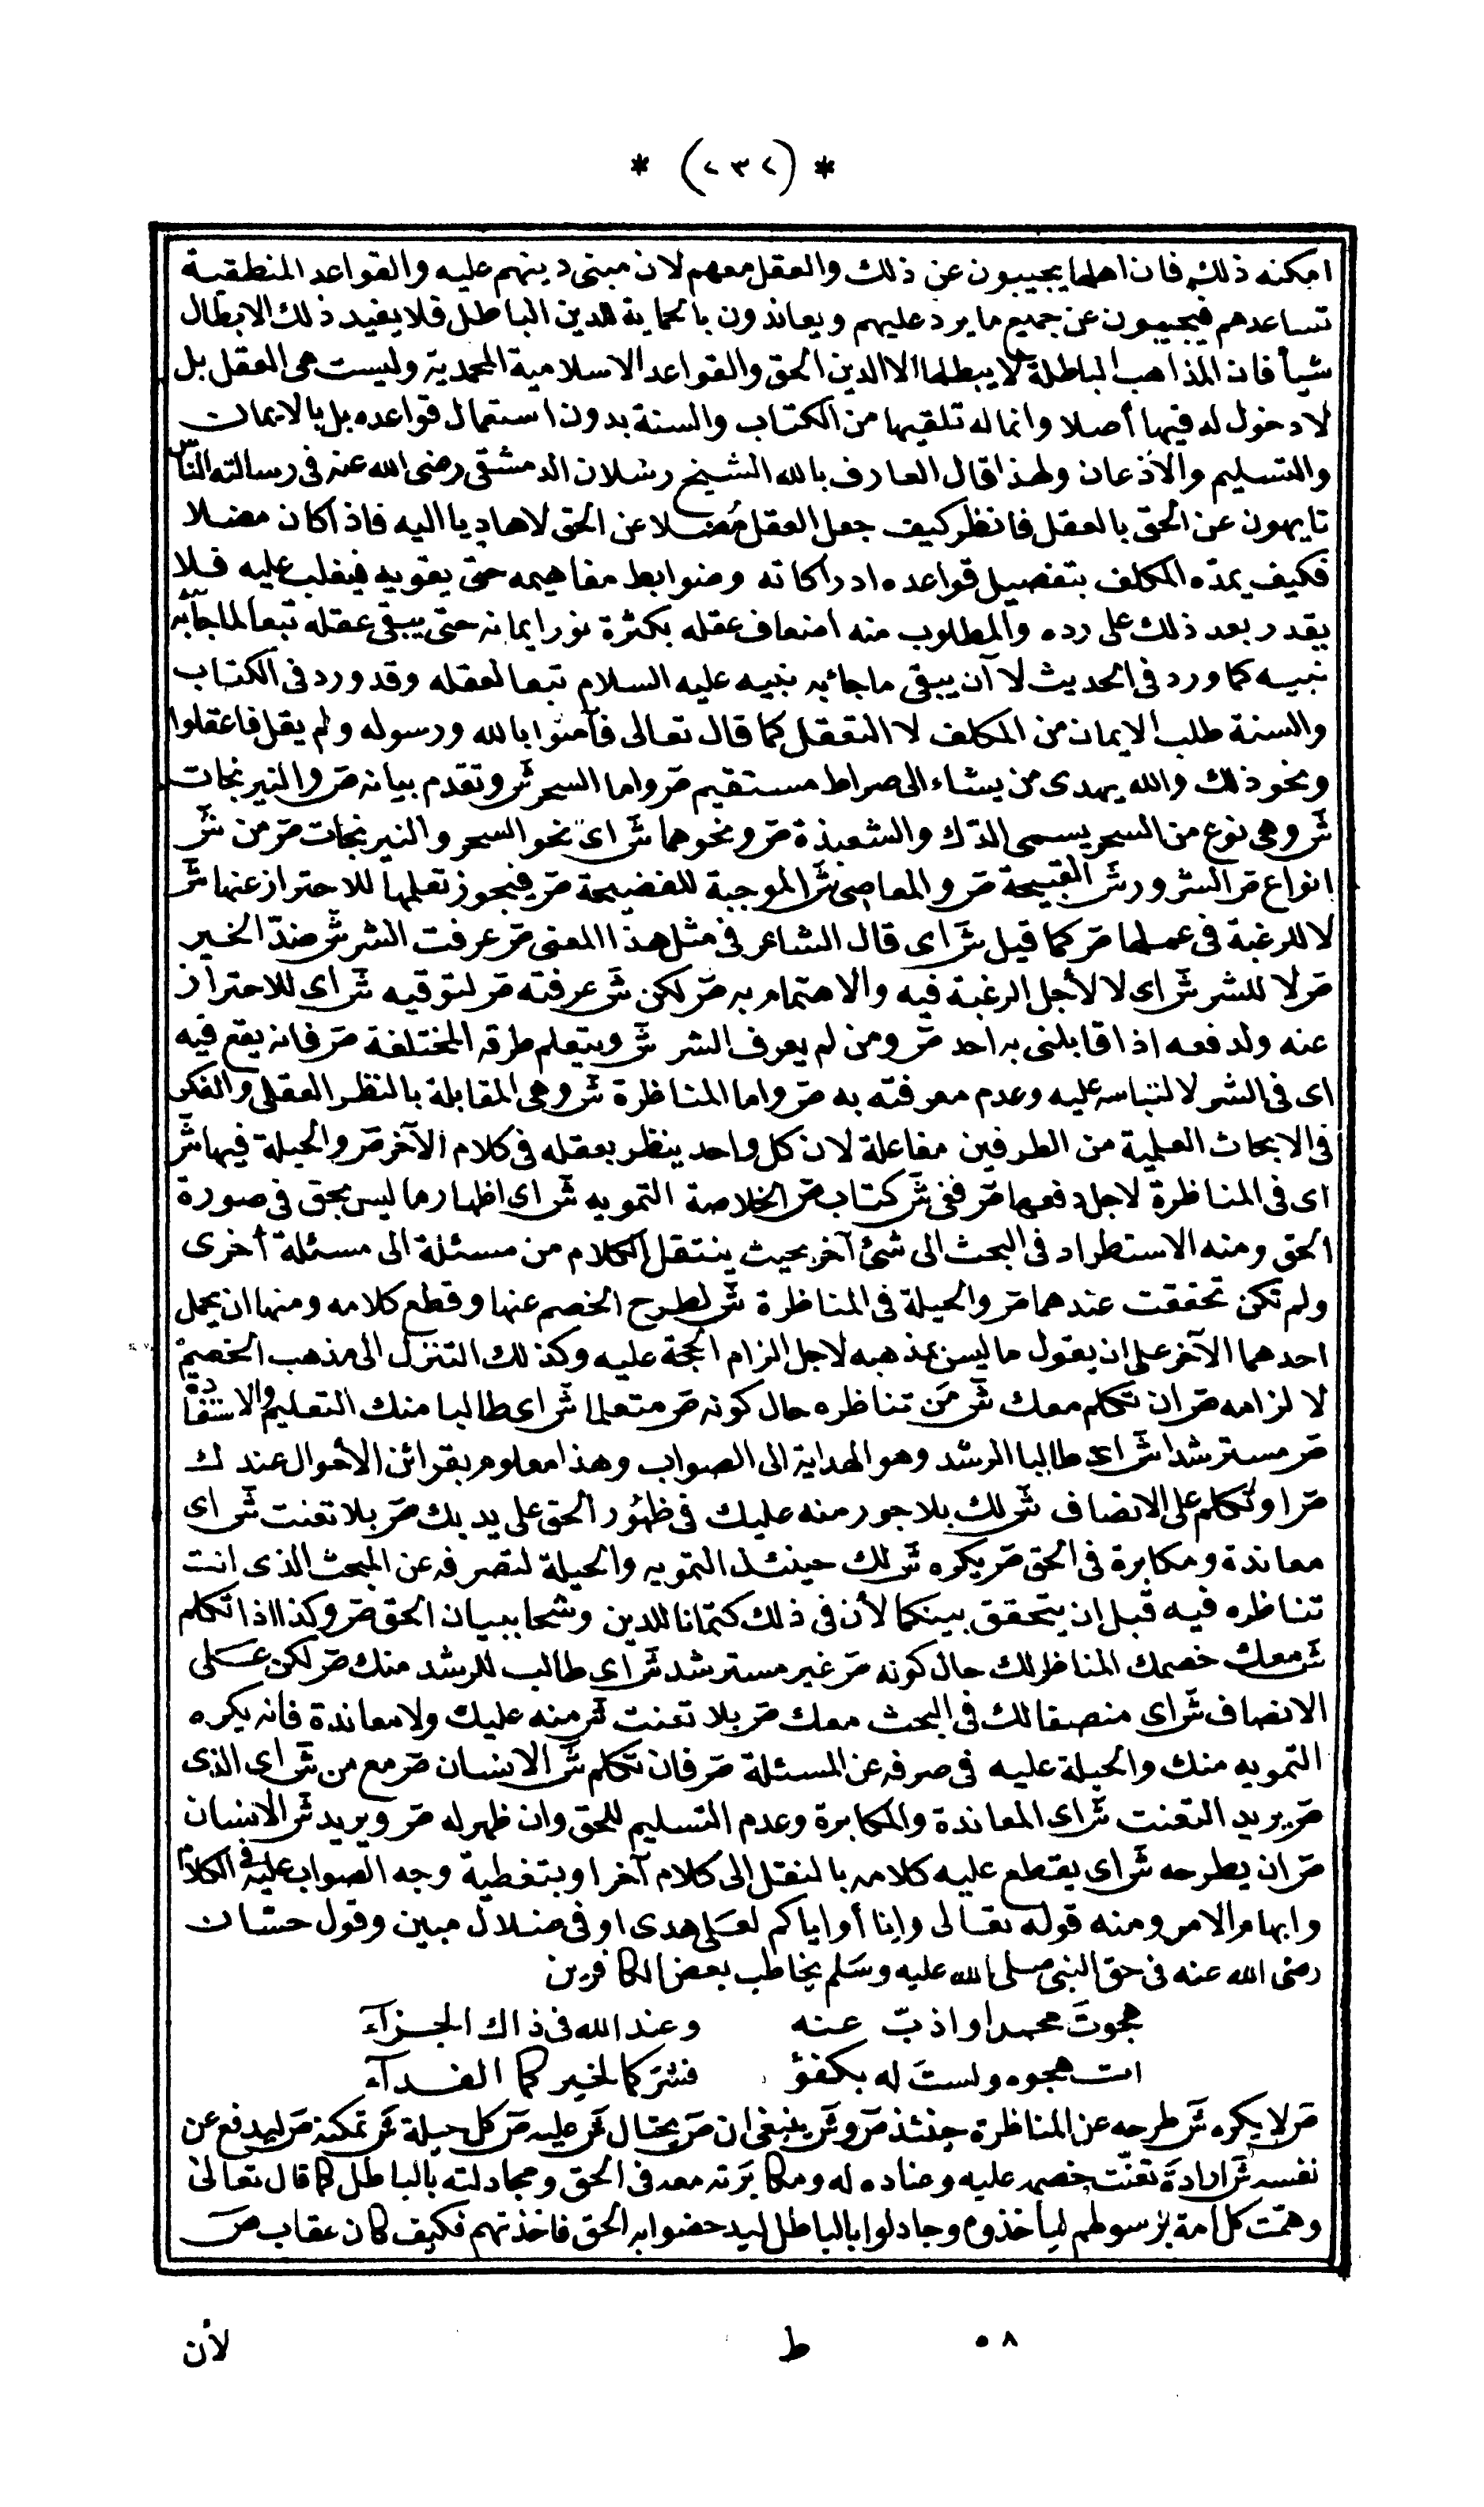 * (٢٣٢) *
امكنه ذلك فان اهلها يجيبون عن ذلك والعقل معهم لان مبنى دينهم عليه والقواعد المنطقية
تساعدهم فيجيبون عن جميع ما يرد عليهم ويعاندون بالحماية لدين الباطل فلا يفيد ذلك الابطال
شيأ فان المذاهب الباطلة لا يبطلها الا الدين الحق والقواعد الاسلامية المحمدية وليست هى العقل بل
لا دخول له فيها أصلا وانما له تلقيها من الكتاب والسنة بدون استعمال قواعده بل بالايمان
والتسليم والاذعان ولهذا قال العارف بالله الشيخ رسلان الدمشقى رضى الله عنه فى رسالته الناس
تايهون عن الحق بالعقل فانظر كيف جعل العقل مُضلا عن الحق لا هاديا اليه فاذا كان مضلا
فكيف يمدّه المكلف بتفصيل قواعده ادراكاته وضوابط مفاهيمه حتى يقويه فيغلب عليه فلا
يقدر بعد ذلك على رده والمطلوب منه اضعاف عقله بكثرة نور ايمانه حتى يبقى عقله تبعا لما جآء به
نبيه كما ورد فى الحديث لا أن يبقى ما جاء به نبيه عليه السلام تبعا لعقله وقد ورد فى الكتاب
والسنة طلب الايمان من المكلف لا التعقل كما قال تعالى فآمنوا بالله ورسوله ولم يقل فاعقلوا
ونحو ذلك والله يهدى من يشاء الى صراط مستقيم صَ واما السحر شَ وتقدم بيانه صَ والنيرنجات
شَ وهى نوع من السحر يسمى الدّك والشعبذة صَ ونحوهما شَ اى نحو السحر والنيرنجات صَ من شَ
انواع صَ الشرور شَ القبيحة صَ والمعاصى شَ الموجبة للفضيحة صَ فيجوز تعلمها للاحتراز عنها شَ
لا للرغبة فى عملها صَ كما قيل شَ اى قال الشاعر فى مثل هذا المعنى صَ عرفت الشر شَ ضدّ الخير
صَ لا للشر شَ اى لا لأجل الرغبة فيه والاهتمام به صَ لكن شَ عرفته صَ لتوقيه شَ اى للاحتراز
عنه ولدفعه اذا قابلنى به احد صَ ومن لم يعرف الشر شَ ويتعلم طرقه المختلفة صَ فانه يقع فيه
اى فى الشر لالتباسه عليه وعدم معرفته به صَ واما المناظرة شَ وهى المقابلة بالنظر العقلى والفكر
فى الابحاث العلمية من الطرفين مفاعلة لان كل واحد ينظر بعقله فى كلام الآخر صَ والحيلة فيها شَ
اى فى المناظرة لاجل دفعها صَ ففى شَ كتاب صَ الخلاصة التمويه شَ اى اظهار ما ليس بحق فى صورة
الحق ومنه الاستطراد فى البحث الى شئ آخر بحيث ينتقل الكلام من مسئلة الى مسئلة أخرى
ولم تكن تحققت عندهما صَ والحيلة فى المناظرة شَ لطرح الخصم عنها وقطع كلامه ومنها ان يحمل
احدهما الآخر على ان يقول ما ليس بمذهبه لاجل الزام الحجة عليه وكذلك التنزل الى مذهب الخصم
لالزامه صَ ان تكلم معك شَ مَن تناظره حال كونه صَ متعلما شَ اى طالبا منك التعليم والاستفادة
صَ مسترشدا شَ اى طالبا الرشد وهو الهداية الى الصواب وهذا معلوم بقرائن الأحوال عندك
صَ او تكلم على الانصاف شَ لك بلا جور منه عليك فى ظهُور الحق على يديك صَ بلا تعنت شَ اى
معاندة ومكابرة فى الحق صَ يكره شَ لك حينئذ التمويه والحيلة لتصرفه عن المبحث الذى انت
تناظره فيه قبل ان يتحقق بينكما لأن فى ذلك كتمانا للدين وشحا ببيان الحق صَ وكذا اذا تكلم
شَ معك خصمك المناظر لك حال كونه صَ غير مسترشد شَ اى طالب للرشد منك صَ لكن على
الانصاف شَ اى منصفا لك فى البحث معك صَ بلا تعنت شَ منه عليك ولا معاندة فانه يكره
التمويه منك والحيلة عليه فى صرفه عن المسئلة صَ فان تكلم شَ الانسان صَ مع من شَ اى الذى
صَ يريد التعنت شَ اى المعاندة والمكابرة وعدم التسليم للحق وان ظهر له صَ ويريد شَ الانسان
صَ ان يطرحه شَ اى يقطع عليه كلامه بالنقل الى كلام آخر او بتغطية وجه الصواب عليه فى الكلام
وابهام الامر ومنه قوله تعالى وانا أو اياكم لعلى هدى او فى ضلال مبين وقول حسّان
رضى الله عنه فى حق النبى صلى الله عليه وسلم يخاطب بعض الكافرين
هجوتَ محمدا واذبّ عنه وعند الله فى ذاك الجزآء
اتهجوه ولستَ له بكفؤ فشرّكما لخيركما الفدآء
صَ لا يكره شَ طرحه عن المناظرة حينئذ صَ و شَ ينبغى ان صَ يحتال شَ عليه صَ كل حيلة شَ تمكنه صَ ليدفع عن
نفسه شَ ارادة تعنّت خصمه عليه وعناده له ومكابرته معه فى الحق ومجادلته بالباطل كما قال تعالى
وهمّت كل أمة برسولهم ليأخذوه وجادلوا بالباطل ليدحضوا به الحق فاخذتهم فكيف كان عقاب صَ
٥٨ ط لأن